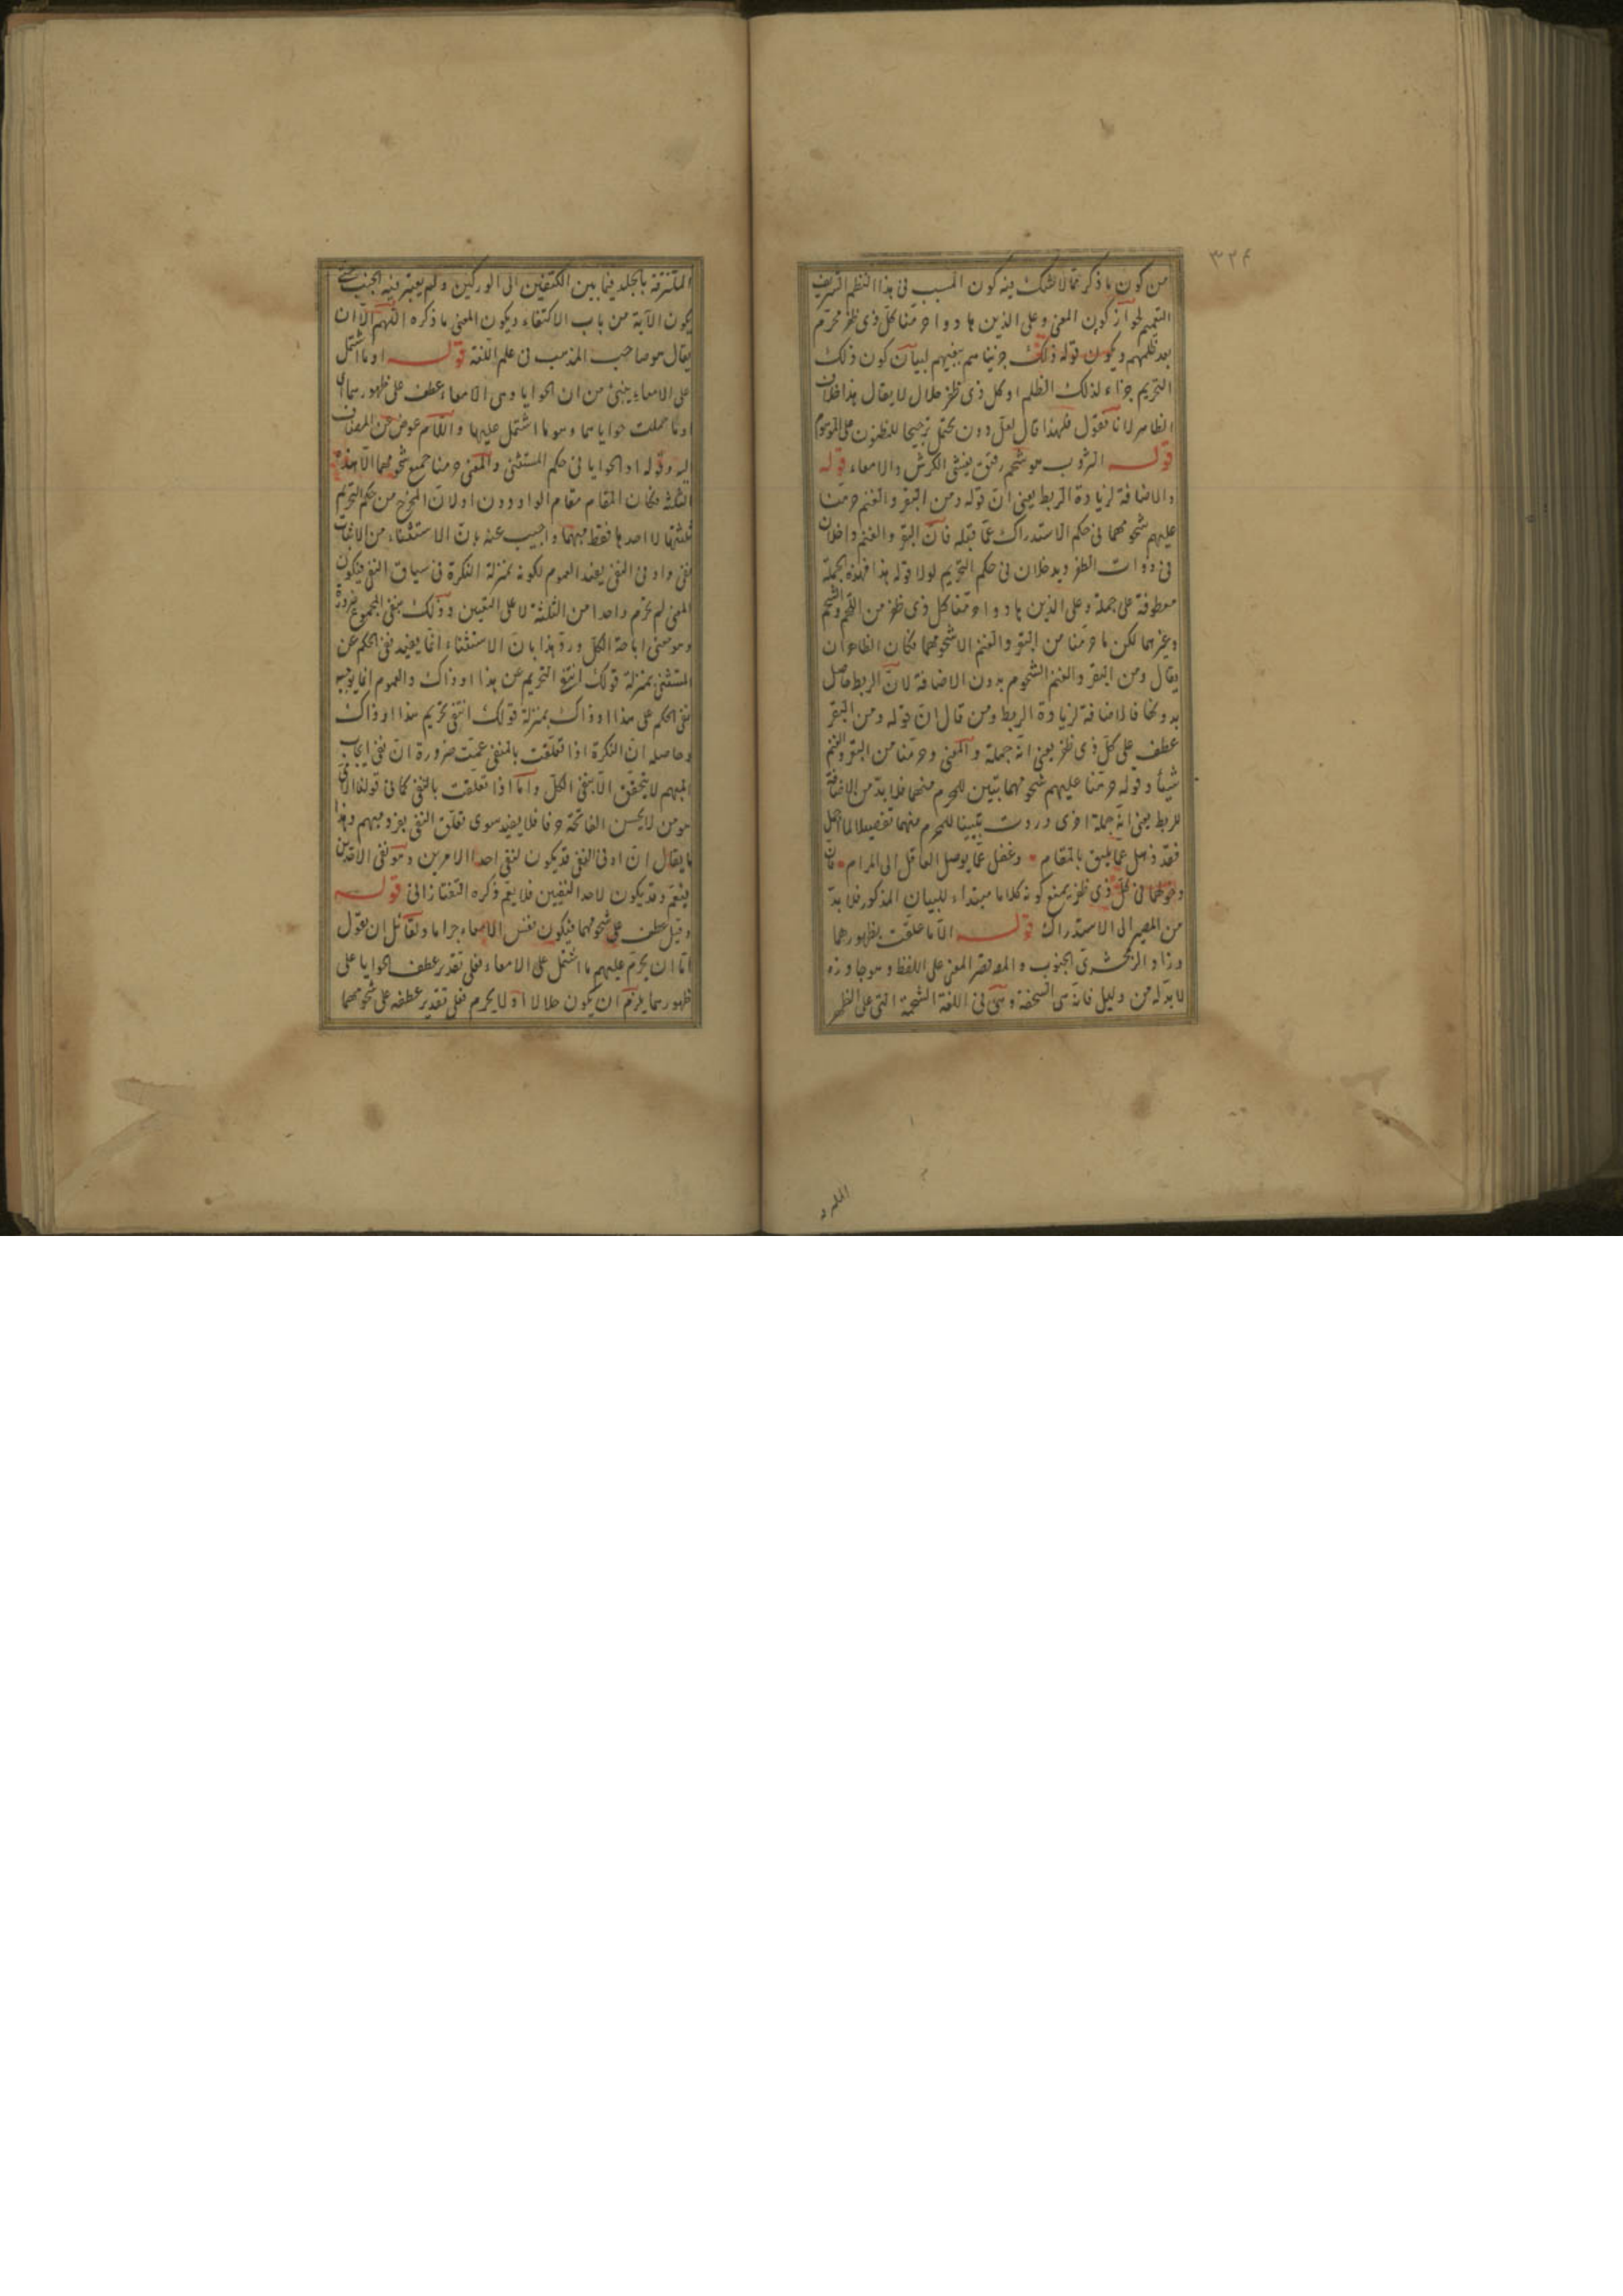 ٣٢٤
من كون ما ذكر مما لا شك فيه كون المسبب في هذا النظم الشريف
التعميم لجواز كون المعنى وعلى الذين هادوا حرمنا كل ذي ظفر محرم
بعد ظلمهم ويكون قوله ذلك جزيناهم ببغيهم لبيان كون ذلك
التحريم جزاء لذلك الظلم او كل ذي ظفر حلال لا يقال هذا خلاف
الظاهر لانا نقول فلهذا قال لعل دون يحتمل ترجيحا للمظنون على الموهوم
قوله الثروب هو شحم رقيق يغشى الكرش والامعاء قوله
والاضافة لزيادة الربط يعني ان قوله ومن البقر والغنم حرمنا
عليهم شحومهما في حكم الاستدراك عما قبله فان البقر والغنم داخلان
في ذوات الظفر ويدخلان في حكم التحريم لولا قوله هذا فهذه الجملة
معطوفة على جملة وعلى الذين هادوا حرمنا كل ذي ظفر من اللحم والشحم
وغيرهما لكن ما حرمنا من البقر والغنم الا شحومهما فكان الظاهر ان
يقال ومن البقر والغنم الشحوم بدون الاضافة لان الربط حاصل
بدونها فالاضافة لزيادة الربط ومن قال ان قوله ومن البقر
عطف على كل ذي ظفر يعني انه جملة والمعنى وحرمنا من البقر والغنم
شيئا وقوله حرمنا عليهم شحومهما تبيين للمحرم منهما فلا بد من الاضافة
للربط يعني انه جملة اخرى وردت تبيينا للمحرم منهما تفصيلا لما اجمل
فقد ذهل عما يليق بالمقام وغفل عما يوصل العاقل الى المرام فان
دخولهما في كل ذي ظفر يمنع كونه كلاما مبتداء للبيان المذكور فلا بد
من المصير الى الاستدراك قوله الا ما علقت بظهورهما
وزاد الزمخشري الجنوب والمص قصر المعنى على اللفظ وهو جاوزه
لا بد له من دليل فانه سي السحفة وهي في اللغة الشحمة التي على الظهر
الملتزقة بالجلد فيما بين الكتفين الى الوركين ولم يعتبر فيه الجنب حتى
يكون الآية من باب الاكتفاء ويكون المعنى ما ذكره اللهم الا ان
يقال هو صاحب المذهب في علم اللغة قوله او ما اشتمل
على الامعاء ينبئ من ان الحوايا وهي الامعاء عطف على ظهورهما اي
او ما حملت حواياهما وهو ما اشتمل عليها واللام عوض عن المضاف
اليه وقوله او الحوايا في حكم المستثنى والمعنى حرمنا جميع شحومهما الا هذه
الثلثة فكان المقام مقام الواو دون او لان المخرج من حكم التحريم
ثلثتها لا احدها فقط مبهما واجيب عنه بان الاستثناء من الاثبات
نفي واو في النفي يفيد العموم لكونه بمنزلة النكرة في سياق النفي فيكون
المعنى لم يحرم واحدا من الثلثة لا على التعيين وذلك ينفي المجموع ضرورة
وهو معنى اباحة الكل ورد هذا بان الاستثناء انما يفيد نفي الحكم عن
المستثنى بمنزلة قولك انتفى التحريم عن هذا او ذاك والعموم انما يوجبه
نفي الحكم على هذا او ذاك بمنزلة قولك انتفى تحريم هذا او ذاك
وحاصله ان النكرة اذا تعلقت بالمنفي عمت ضرورة ان نفي ايجاب
المبهم لا يتحقق الا بنفي الكل واما اذا تعلقت بالنفي كما في قولنا الامي
هو من لا يحسن الفاتحة حرفا فلا يفيد سوى تعلق النفي بفرد مبهم وهذا
ما يقال ان او في النفي قد يكون لنفي احد الامرين وهو نفي الاقدمين
فيعم وقد يكون لاحد النفيين فلا يعم ذكره التفتازاني قوله
وقيل عطف على شحومهما فيكون نفس الامعاء حراما ولقائل ان يقول
اما ان يحرم عليهم ما اشتمل على الامعاء فعلى تقدير عطف الحوايا على
ظهورهما يلزم ان يكون حلالا او لا يحرم فعلى تقدير عطفه على شحومهما